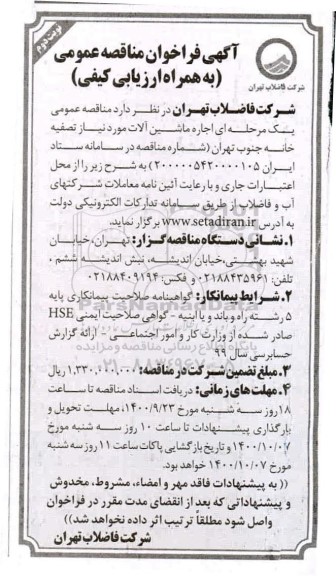 نوبت دوم
آگهی فراخوان مناقصه عمومی
(به همراه ارزیابی کیفی)
شرکت فاضلاب تهران
شرکت فاضلاب تهران در نظر دارد مناقصه عمومی
یک مرحله ای اجاره ماشین آلات مورد نیاز تصفیه
خانه جنوب تهران (شماره مناقصه در سامانه ستاد
ایران ۲۰۰۰۰۰۵۴۲۰۰۰۰۱۰۵) به شرح زیر را از محل
اعتبارات جاری و با رعایت آئین نامه معاملات شرکتهای
آب و فاضلاب از طریق سامانه تدارکات الکترونیکی دولت
به آدرس www.setadiran.ir برگزار نماید.
۱. نشانی دستگاه مناقصه گزار: تهران، خیابان
شهید بهشتی، خیابان اندیشه، نبش اندیشه ششم ،
تلفن: ۰۲۱۸۸۴۳۵۹۶۱ و فکس: ۰۲۱۸۸۴۰۹۱۹۴
۲. شرایط پیمانکار: گواهینامه صلاحیت پیمانکاری پایه
۵ رشته راه و باند و یا ابنیه - گواهی صلاحیت ایمنی HSE
صادر شده از وزارت کار و امور اجتماعی - ارائه گزارش
حسابرسی سال ۹۹
۳. مبلغ تضمین شرکت در مناقصه: ۱,۳۳۰,۰۰۰,۰۰۰ ریال
۴. مهلت های زمانی: دریافت اسناد مناقصه تا ساعت
۱۸ روز سه شنبه مورخ ۱۴۰۰/۹/۲۳، مهلت تحویل و
بارگذاری پیشنهادات تا ساعت ۱۰ روز سه شنبه مورخ
۱۴۰۰/۱۰/۰۷ و تاریخ بازگشایی پاکات ساعت ۱۱ روز سه شنبه
مورخ ۱۴۰۰/۱۰/۰۷ خواهد بود.
(( به پیشنهادات فاقد مهر و امضاء، مشروط، مخدوش
و پیشنهاداتی که بعد از انقضای مدت مقرر در فراخوان
واصل شود مطلقاً ترتیب اثر داده نخواهد شد))
شرکت فاضلاب تهران